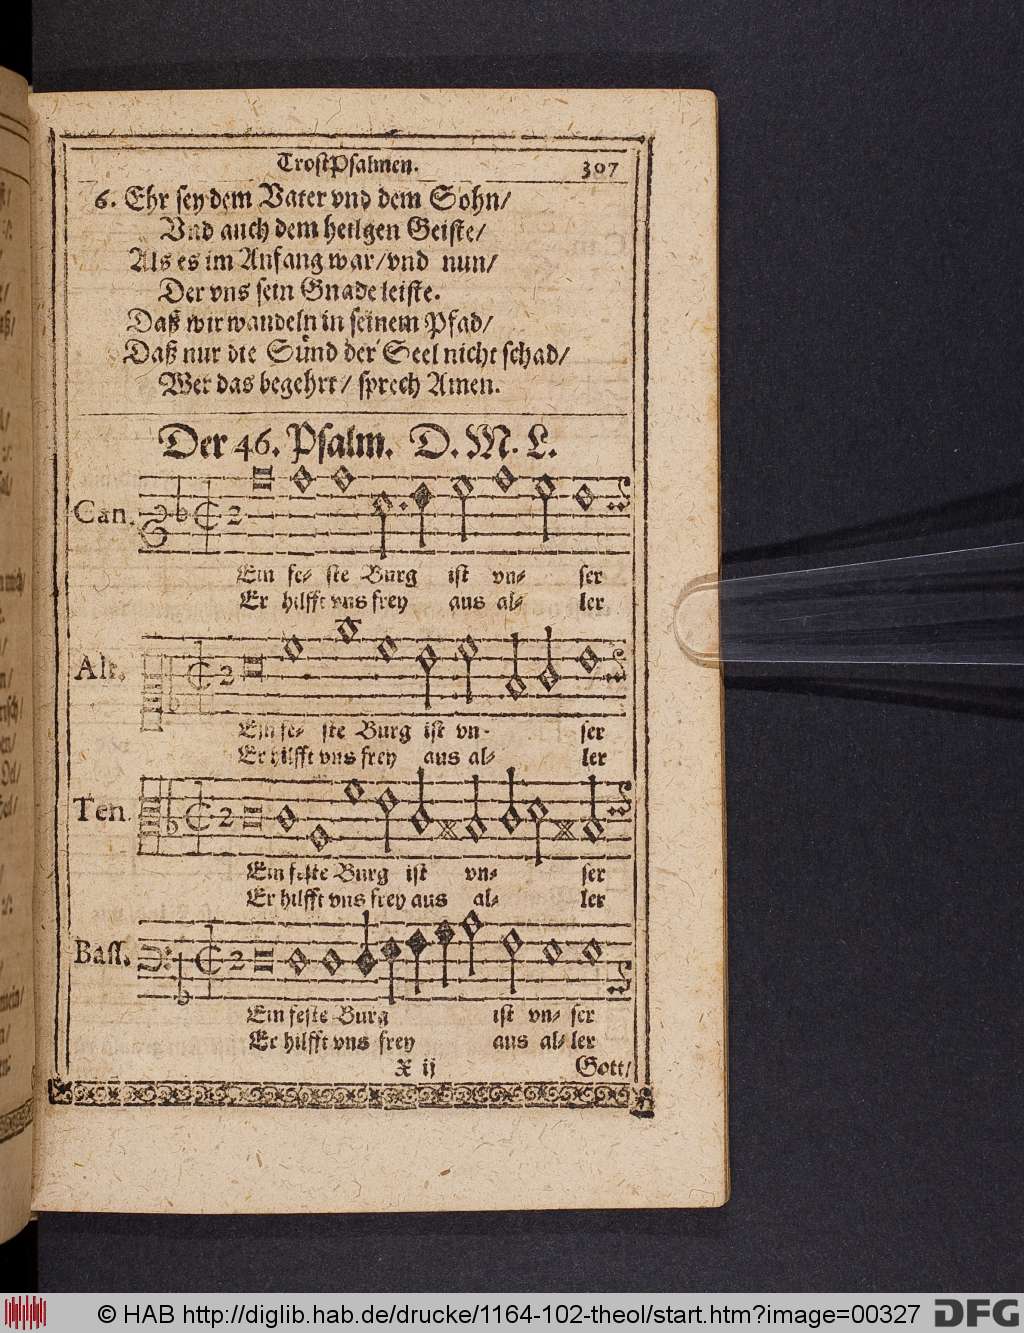 TrostPsalmen. 307
6. Ehr sey dem Vater vnd dem Sohn/
Vnd auch dem heilgen Geiste/
Als es im Anfang war/vnd nun/
Der vns sein Gnade leiste.
Daß wir wandeln in seinem Pfad/
Daß nur die Sünd der Seel nicht schad/
Wer das begehrt/ sprech Amen.
Der 46. Psalm. D. M. L.
Can. 2
Ein fe- ste Burg ist vn- ser
Er hilfft vns frey aus al- ler
Alt. 2
Ein fe- ste Burg ist vn- ser
Er hilfft vns frey aus al- ler
Ten. 2
Ein feste Burg ist vn- ser
Er hilfft vns frey aus al- ler
Bass. 2
Ein feste Burg ist vn- ser
Er hilfft vns frey aus al- ler
X ij Gott/
© HAB http://diglib.hab.de/drucke/1164-102-theol/start.htm?image=00327 DFG